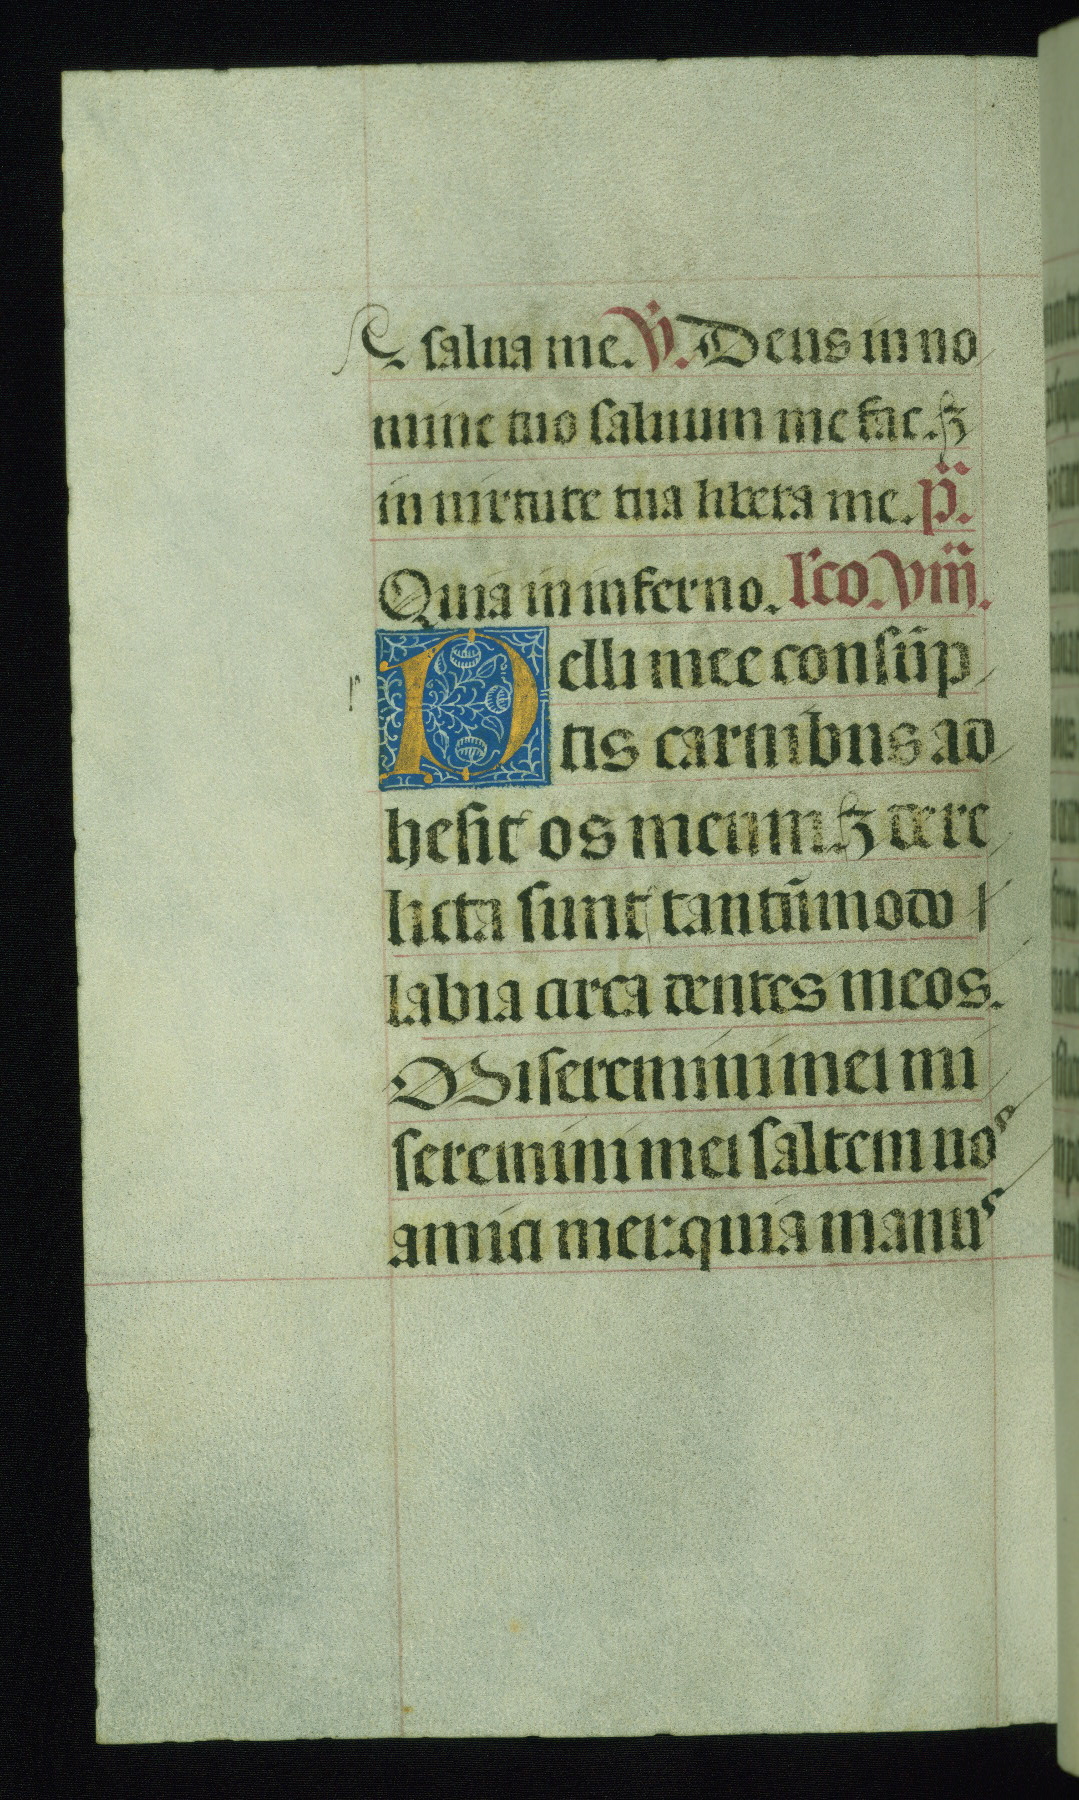 Et salua me. V̇. Deus in no
mine tuo saluum me fac. ⁊
in uirtute tua libera me. p̈.
Quia in inferno. lc̄o. viij.
Pelli mee consūp
tis carnibus ad
hesit os meum: ⁊ dere
licta sunt tantūmodo
labia circa dentes meos.
Miseremini mei mi
seremini mei saltem uoˢ
amici mei: quia manuˢ